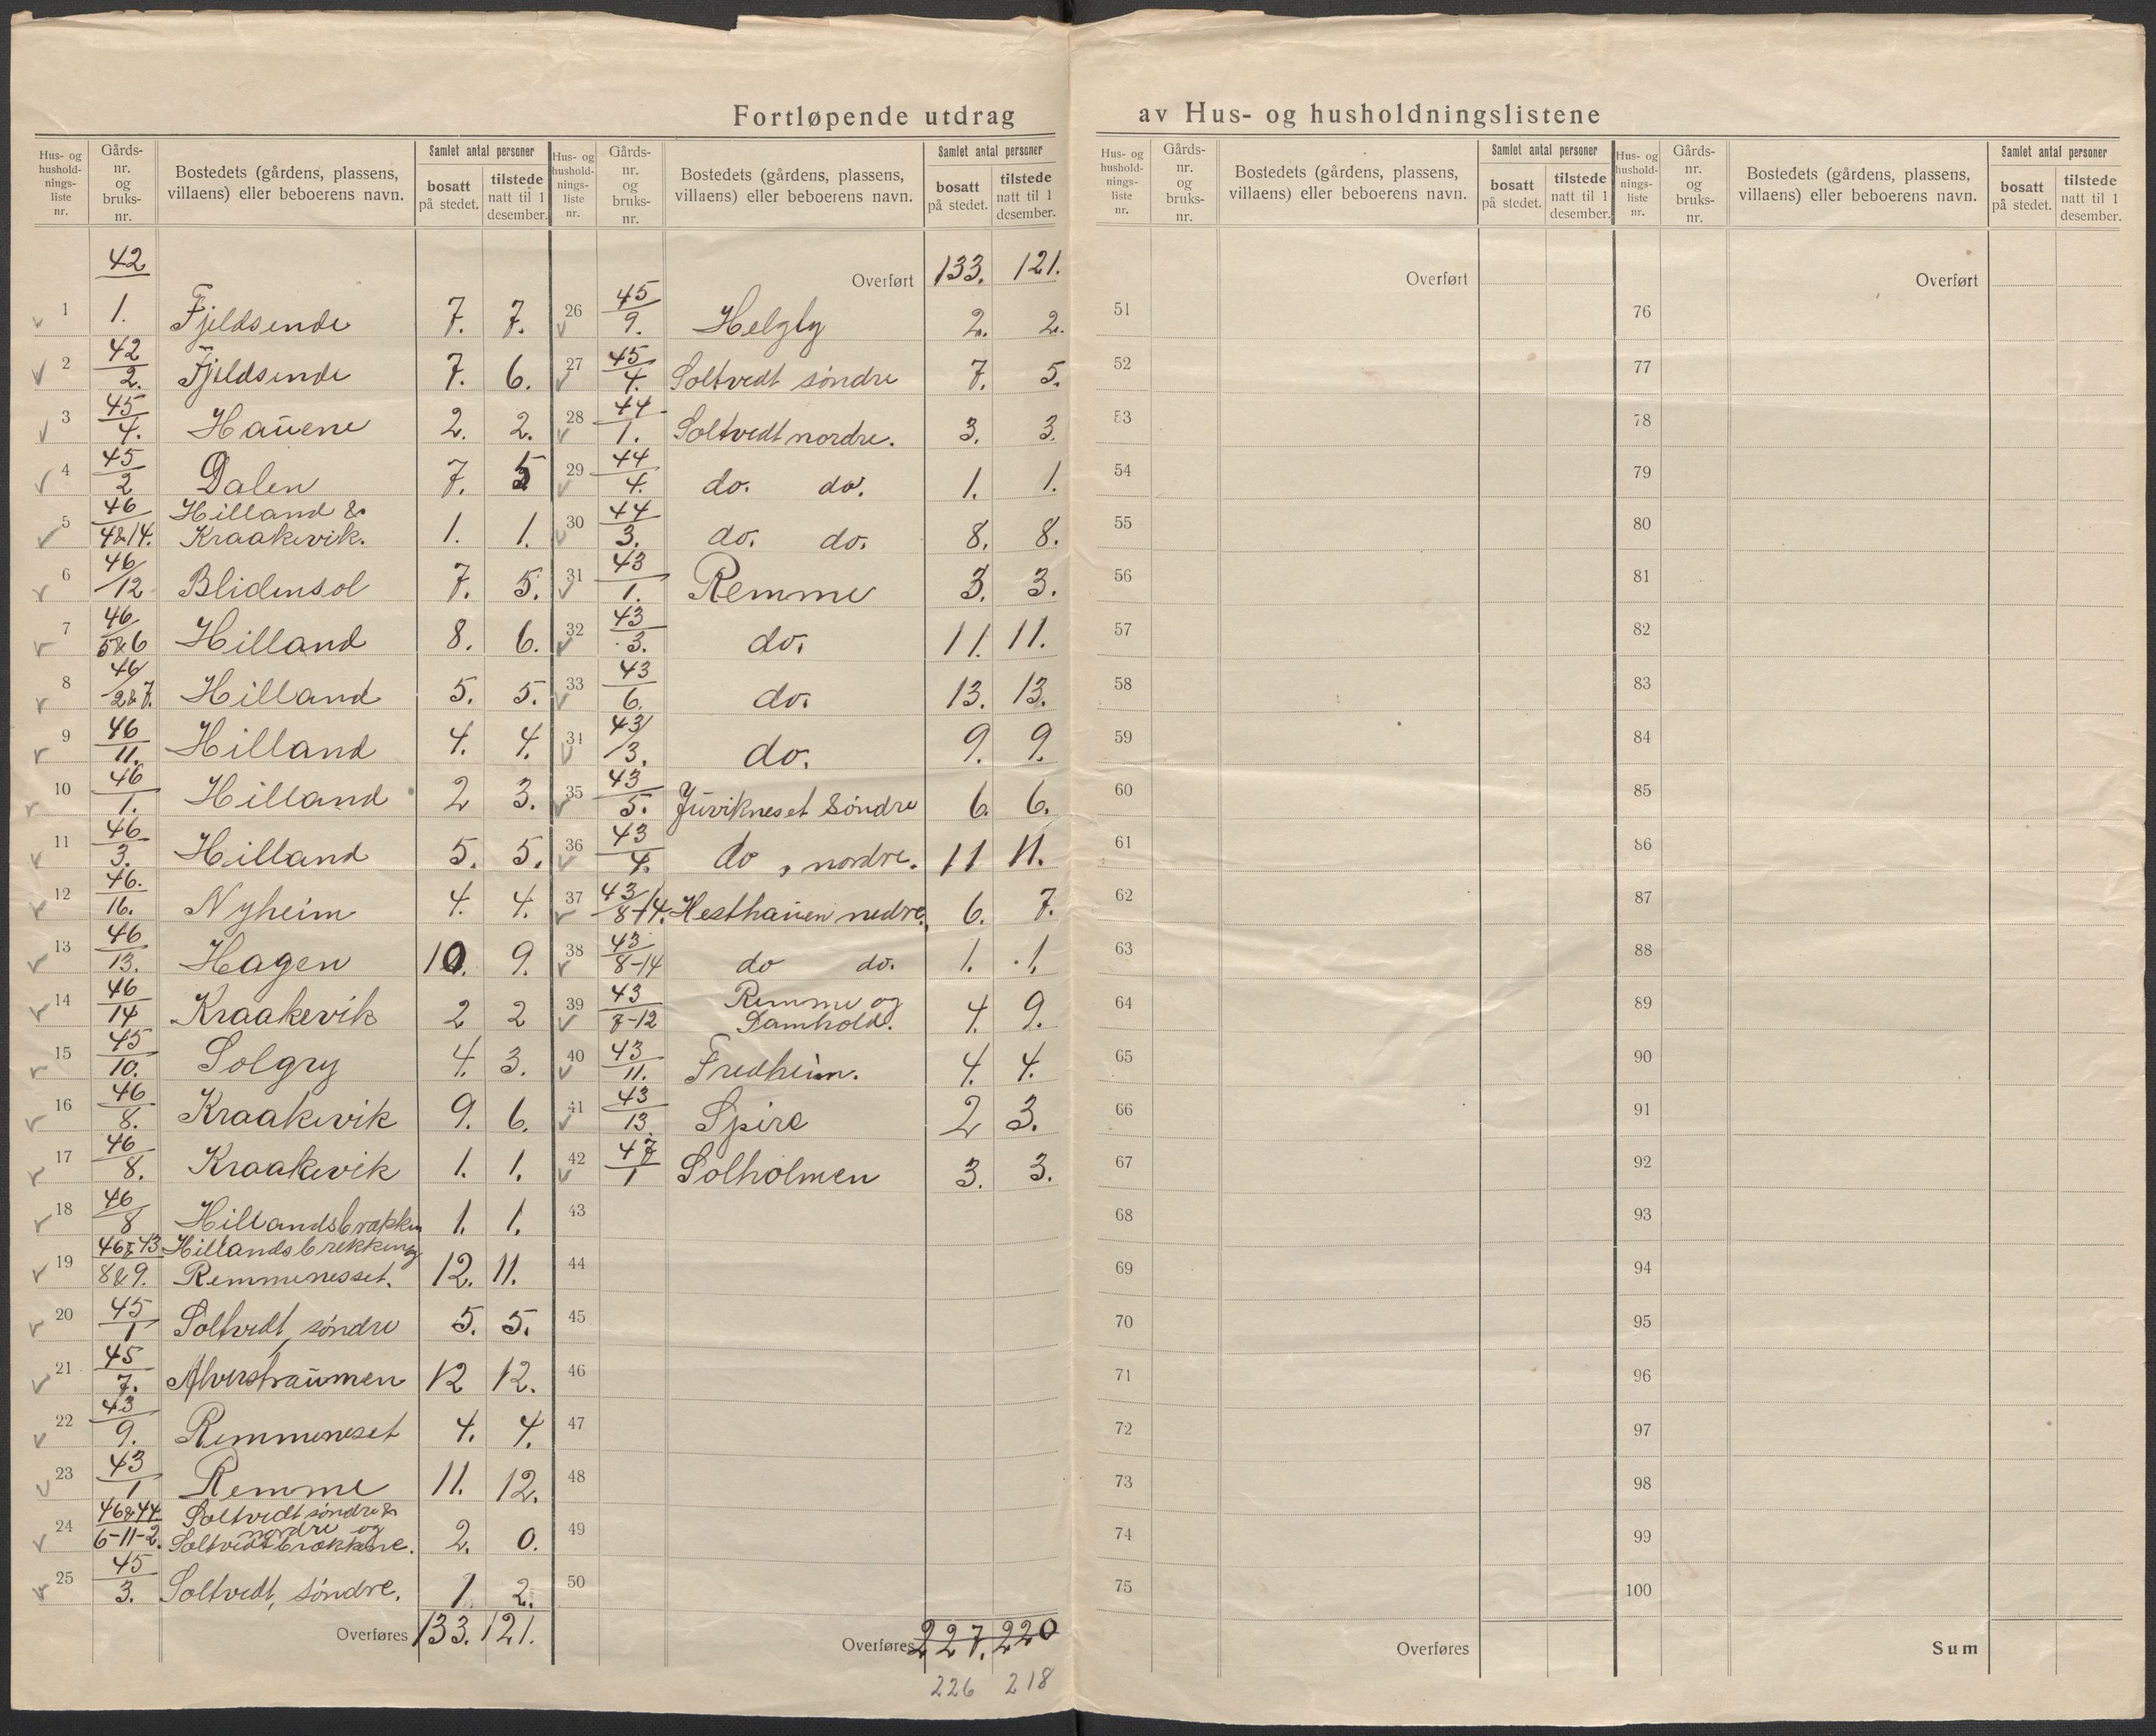 Fortløpende utdrag av Hus- og husholdningslistene
Hus- og hushold-nings-liste nr. | Gårds-nr. og bruks-nr. | Bostedets (gårdens, plassens, villaens) eller beboerens navn. | Samlet antal personer | bosatt på stedet. | tilstede natt til 1 desember.
1 42/1. Fjeldsende 7. 7.
2 42/2. Fjeldsende 7. 6.
3 45/4. Hauene 2. 2.
4 45/2 Dalen 7. 5
5 46/4&14. Hilland & Kraakevik. 1. 1.
6 46/12 Blidensol 7. 5.
7 46/5&6 Hilland 8. 6.
8 46/2&7. Hilland 5. 5.
9 46/11. Hilland 4. 4.
10 46/1. Hilland 2 3.
11 46/3. Hilland 5. 5.
12 46./16. Nyheim 4. 4.
13 46/13. Hagen 10. 9.
14 46/14 Kraakevik 2 2
15 45/10. Solgry 4. 3.
16 46/8. Kraakevik 9. 6.
17 46/8. Kraakevik 1. 1.
18 46/8 Hillandsbrækken 1. 1.
19 46&43/8&9. Hillandsbrekken og Remmenesset. 12. 11.
20 45/1 Soltvedt, søndre 5. 5.
21 45/7. Alverstraumen 12 12.
22 43/9. Remmeneset 4. 4.
23 43/1 Remme 11. 12.
24 46&44/6-11-2. Soltvedt søndre & nordre og Soltvedtbrækkene. 2. 0.
25 45/3. Soltvedt, søndre. 1. 2.
Overføres 133. 121.
Hus- og hushold-nings-liste nr. | Gårds-nr. og bruks-nr. | Bostedets (gårdens, plassens, villaens) eller beboerens navn. | Samlet antal personer | bosatt på stedet. | tilstede natt til 1 desember.
Overført 133. 121.
26 45/9. Helgly 2. 2.
27 45/4. Soltvedt søndre 7. 5.
28 44/1. Soltvedt nordre. 3. 3.
29 44/4. do. do. 1. 1.
30 44/3. do. do. 8. 8.
31 43/1. Remme 3. 3.
32 43/3. do. 11. 11.
33 43/6. do. 13. 13.
34 43/3. do. 9. 9.
35 43/5. Juvikneset Søndre 6. 6.
36 43/4. do, nordre. 11 11.
37 43/8-14. Hesthauen nedre. 6. 7.
38 43/8-14 do do. 1. 1.
39 43/7-12 Remme og Damhold. 4. 9.
40 43/11. Fredheim. 4. 4.
41 43/13. Spire 2 3.
42 47/1 Solholmen 3. 3.
43
44
45
46
47
48
49
50
Overføres 227. 220
226 218
Hus- og hushold-nings-liste nr. | Gårds-nr. og bruks-nr. | Bostedets (gårdens, plassens, villaens) eller beboerens navn. | Samlet antal personer | bosatt på stedet. | tilstede natt til 1 desember.
Overført
51
52
53
54
55
56
57
58
59
60
61
62
63
64
65
66
67
68
69
70
71
72
73
74
75
Overføres
Hus- og hushold-nings-liste nr. | Gårds-nr. og bruks-nr. | Bostedets (gårdens, plassens, villaens) eller beboerens navn. | Samlet antal personer | bosatt på stedet. | tilstede natt til 1 desember.
Overført
76
77
78
79
80
81
82
83
84
85
86
87
88
89
90
91
92
93
94
95
96
97
98
99
100
Sum